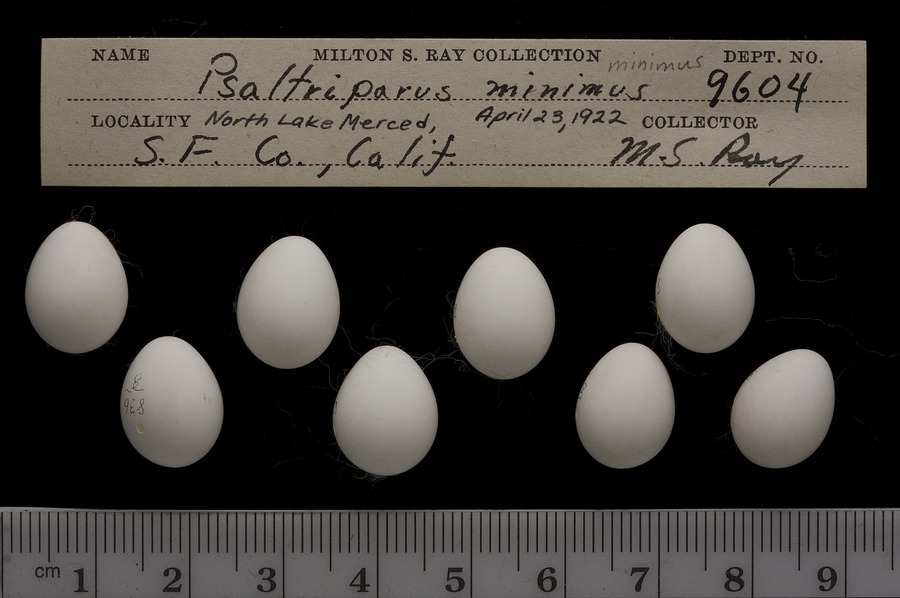 NAME MILTON S. RAY COLLECTION minimus DEPT. NO.
Psaltriparus minimus 9604
LOCALITY North Lake Merced, April 23, 1922 COLLECTOR
S. F. Co., Calif M.S. Ray
8
968
cm 1 2 3 4 5 6 7 8 9